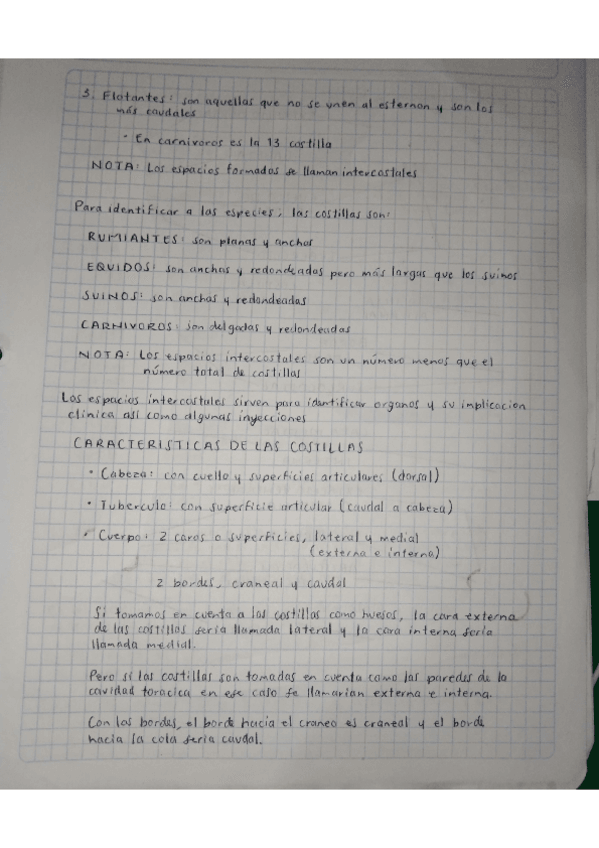 3. Flotantes: son aquellas que no se unen al esternon y son las
más caudales
• En carnivoros es la 13 costilla
NOTA: Los espacios formados se llaman intercostales
Para identificar a las especies, las costillas son:
RUMIANTES: son planas y anchas
EQUIDOS: son anchas y redondeadas pero más largas que los suinos
SUINOS: son anchas y redondeadas
CARNIVOROS: son delgadas y redondeadas
NOTA: Los espacios intercostales son un número menos que el
número total de costillas
Los espacios intercostales sirven para identificar organos y su implicacion
clinica asi como algunas inyecciones
CARACTERISTICAS DE LAS COSTILLAS
• Cabeza: con cuello y superficies articulares (dorsal)
• Tuberculo: con superficie articular (caudal a cabeza)
• Cuerpo: 2 caras o superficies, lateral y medial
(externa e interna)
2 bordes, craneal y caudal
Si tomamos en cuenta a las costillas como huesos, la cara externa
de las costillas seria llamada lateral y la cara interna seria
llamada medial.
Pero si las costillas son tomadas en cuenta como las paredes de la
cavidad toracica en ese caso se llamarian externa e interna.
Con los bordes, el borde hacia el craneo es craneal y el borde
hacia la cola seria caudal.